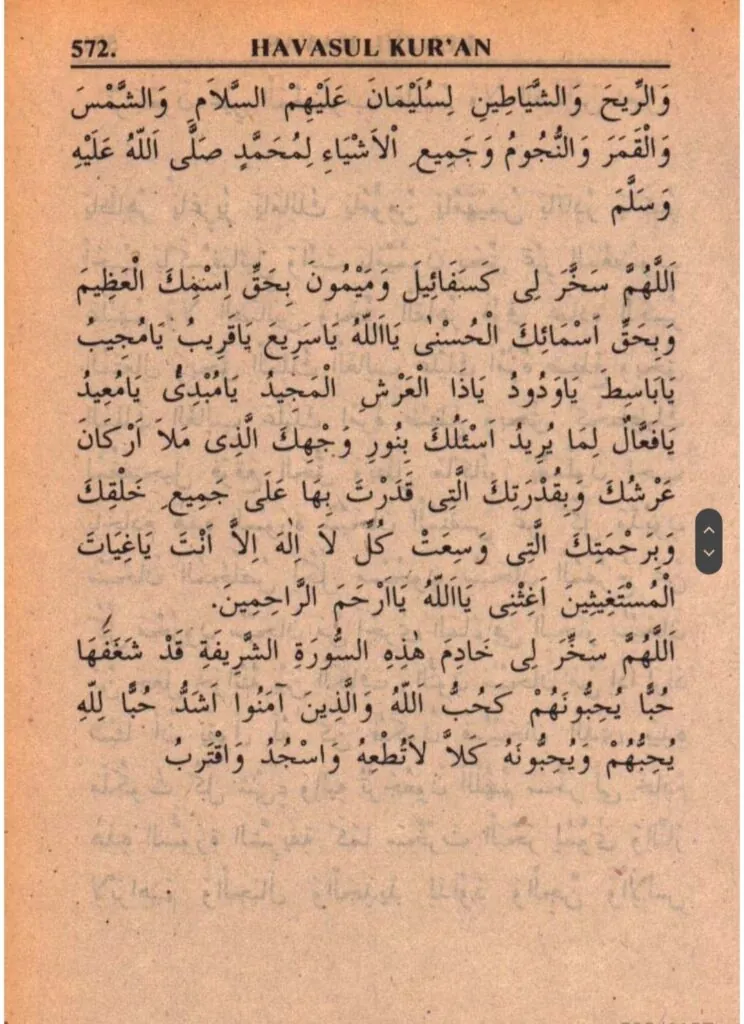 572. HAVASUL KUR'AN
وَالرِّيحَ وَالشَّيَاطِينِ لِسُلَيْمَانَ عَلَيْهِمْ السَّلَامِ وَالشَّمْسَ
وَالْقَمَرَ وَالنُّجُومُ وَجَمِيعِ الْاَشْيَاءِ لِمُحَمَّدٍ صَلَّى اَللّٰهُ عَلَيْهِ
وَسَلَّمَ
اَللَّهُمَّ سَخَّرَ لِى كَسَفَائِيلَ وَمَيْمُونَ بِحَقِّ اِسْمِكَ الْعَظِيمَ
وَبِحَقِّ اَسْمَائِكَ الْحُسْنٰى يَااَللّٰهُ يَاسَرِيعَ يَاقَرِيبُ يَامُجِيبُ
يَابَاسِطَ يَاوَدُودُ يَاذَا الْعَرْشِ الْمَجِيدُ يَامُبْدِئُ يَامُعِيدُ
يَافَعَّالٌ لِمَا يُرِيدُ اَسْئَلُكَ بِنُورِ وَجْهِكَ الَّذِى مَلَاَ اَرْكَانَ
عَرْشُكَ وَبِقُدْرَتِكَ الَّتِى قَدَرْتَ بِهَا عَلَى جَمِيعِ خَلْقِكَ
وَبِرَحْمَتِكَ الَّتِى وَسِعَتْ كُلِّ لاَ اِلٰهَ اِلاَّ اَنْتَ يَاغِيَاثَ
الْمُسْتَغِيثِينَ اَغِثْنِى يَااَللّٰهُ يَااَرْحَمَ الرَّاحِمِينَ.
اَللَّهُمَّ سَخِّرَ لِى خَادِمَ هٰذِهِ السُّورَةِ الشَّرِيفَةِ قَدْ شَغَفَهَا
حُبًّا يُحِبُّونَهُمْ كَحُبُّ اَللّٰهُ وَالَّذِينَ آمَنُوا اَشَدُّ حُبًّا لِلّٰهِ
يُحِبُّهُمْ وَيُحِبُّونَهُ كَلاَّ لَاتُطْعِهُ وَاسْجُدُ وَاقْتَرِبُ